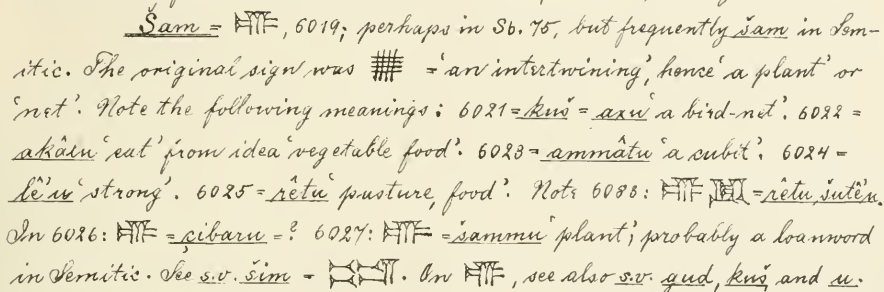 Šam = 𒌑, 6019; perhaps in Sb. 75, but frequently šam in Sem-
itic. The original sign was = 'an intertwining', hence 'a plant' or
'net'. Note the following meanings: 6021 = kuš = axu 'a bird-net'. 6022 =
akâlu 'eat' from idea 'vegetable food'. 6023 = ammâtu 'a cubit'. 6024 =
lê'u 'strong'. 6025 = rêtu 'pasture, food'. Note 6083: 𒌑 = rêtu, šutê'u.
In 6026: 𒌑 = çibaru = ? 6027: 𒌑 = šammu 'plant', probably a loanword
in Semitic. See s.v. šim = . On 𒌑, see also s.v. gud, kuš and u.